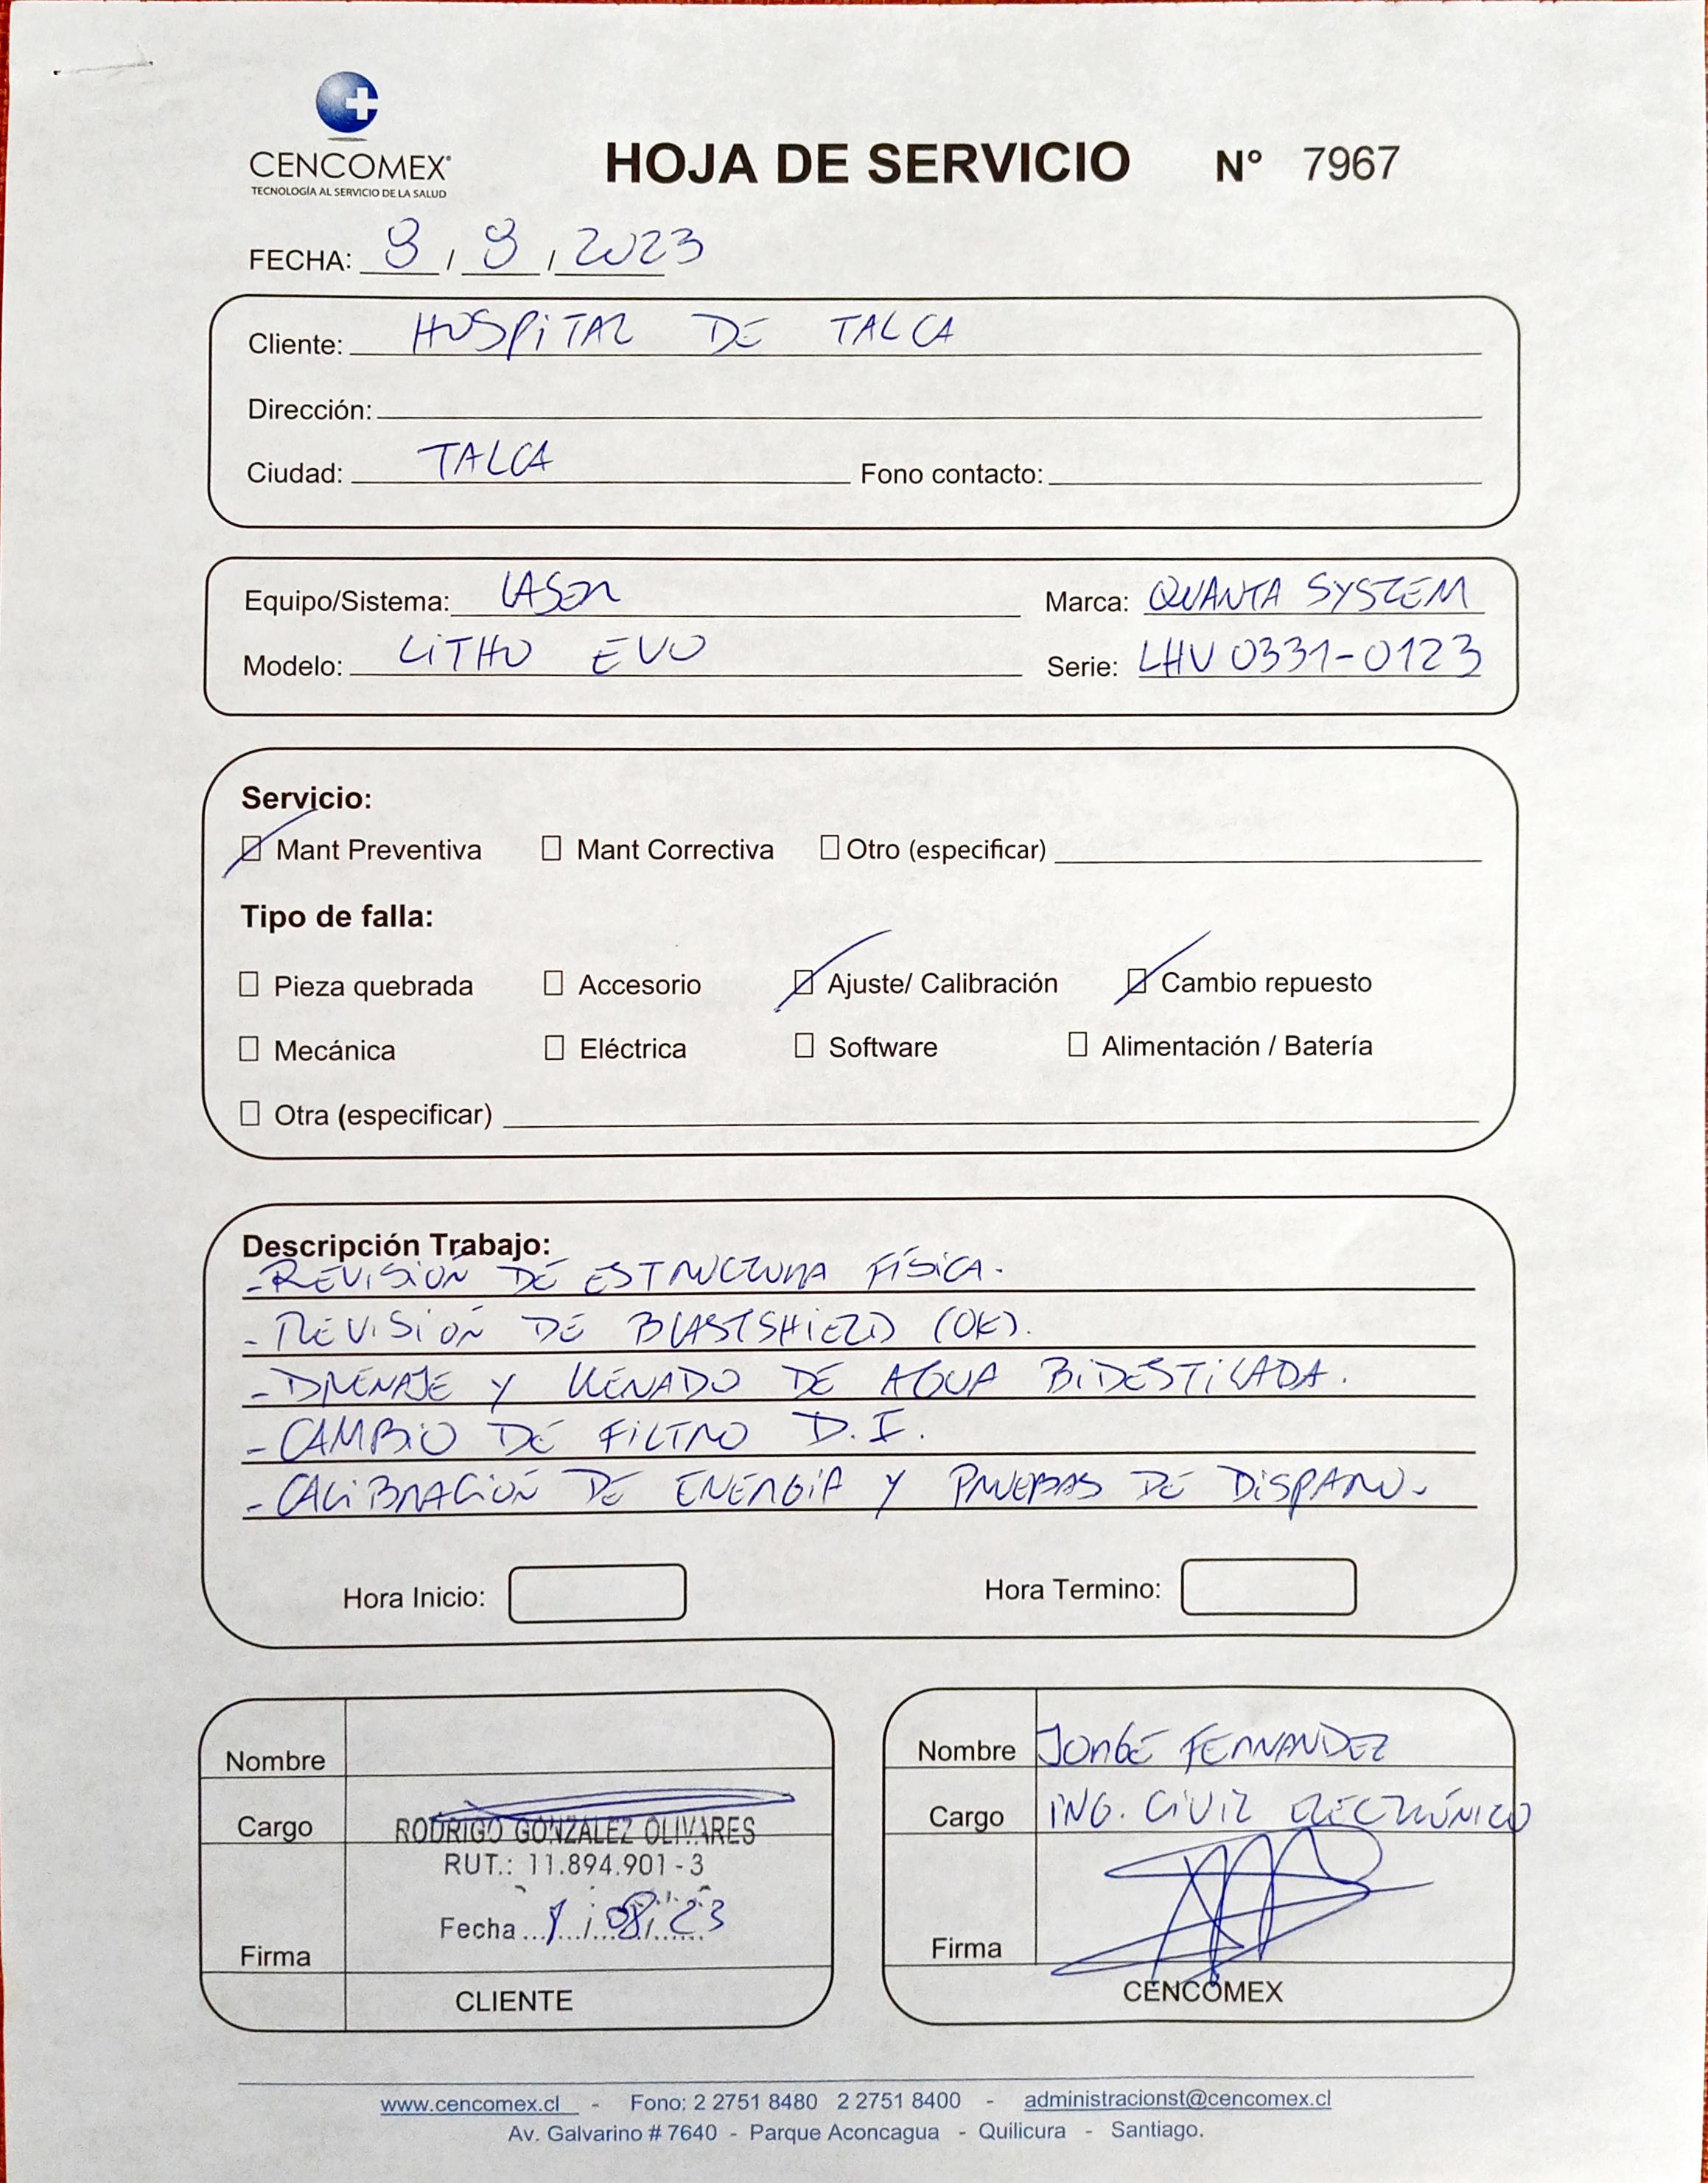 CENCOMEX
TECNOLOGÍA AL SERVICIO DE LA SALUD
HOJA DE SERVICIO N° 7967
FECHA: 8 / 8 / 2023
Cliente: HOSPITAL DE TALCA
Dirección:
Ciudad: TALCA Fono contacto:
Equipo/Sistema: LASER Marca: QUANTA SYSTEM
Modelo: LITHO EVO Serie: LHV 0331-0123
Servicio:
Mant Preventiva Mant Correctiva Otro (especificar)
Tipo de falla:
Pieza quebrada Accesorio Ajuste/ Calibración Cambio repuesto
Mecánica Eléctrica Software Alimentación / Batería
Otra (especificar)
Descripción Trabajo:
- REVISIÓN DE ESTRUCTURA FÍSICA.
- REVISIÓN DE BLASTSHIELD (OK).
- DRENAJE Y LLENADO DE AGUA BIDESTILADA.
- CAMBIO DE FILTRO D.I.
- CALIBRACIÓN DE ENERGÍA Y PRUEBAS DE DISPARO.
Hora Inicio: Hora Termino:
Nombre
Cargo
RODRIGO GONZALEZ OLIVARES
RUT.: 11.894.901-3
Fecha / 08 / 23
Firma
CLIENTE
Nombre JORGE FERNANDEZ
Cargo ING. CIVIL ELECTRÓNICO
Firma
CENCOMEX
www.cencomex.cl - Fono: 2 2751 8480 2 2751 8400 - administracionst@cencomex.cl
Av. Galvarino # 7640 - Parque Aconcagua - Quilicura - Santiago.